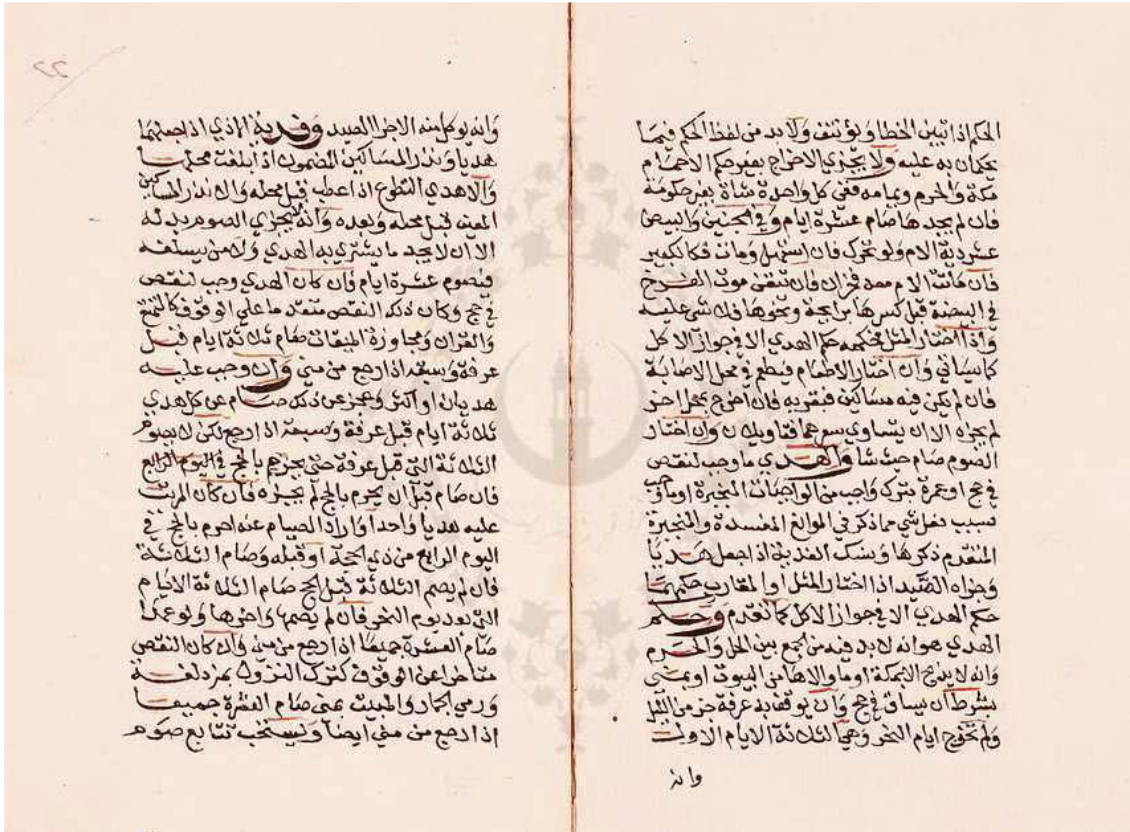 الحكم اذا تبين الخطا ويؤتنف ولا بد من لفظ الحكم فيما
يحكمان به عليه ولا يجزي الاخراج بغير حكم الاحمام
مكة والحرم ويمامه ففي كل واحدة شاة بغير حكومة
فان لم يجدها صام عشرة ايام وفي الجنين والبيض
عشر دية الام ولو تحرك فان استهل ومات فكالكبير
فان ماتت الام معه فجزاان فان تيقن موت الفرخ
في البيضة قبل كسرها برايحة ونحوها فلا شي عليه
واذا اختار المثل فحكمه حكم الهدي الا في جواز الاكل
كما سياتي وان اختار الاطعام فيطعم في محل الاصابة
فان لم يكن فيه مساكين فبقربه فان اخرج بمحل اخر
لم يجزه الا ان يتساوي سعرهما فتاويلان وان اختار
الصوم صام حيث شا والهدي ما وجب لنقص
في حج او عمرة بترك واجب من الواجبات المنجبرة او ما وجب
بسبب فعل شي مما ذكر في الموانع المفسدة والمنجبرة
المتقدم ذكرها ونسك الفدية اذا جعل هديا
وجزاء الصيد اذا اختار المثل او المقارب حكمهما
حكم الهدي الا في جواز الاكل كما تقدم وحكم
الهدي هو انه لا بد فيه من الجمع بين الحل والحرم
وانه لا يذبح الا بمكة او ما والاها من البيوت او بمنى
بشرط ان يساق في حج وان يوقف به عرفة جزء من الليل
ولم تخرج ايام النحر وهي الثلاثة الايام الاولت
وانه
22
وانه يوكل منه الا جزا الصيد وفدية الاذي اذا جعلهما
هديا ونذر المساكين المضمون اذا بلغت محلها
والا هدي التطوع اذا عطب قبل محله والا نذر المساكين
المعين قبل محله وبعده وانه لا يجزي الصوم بدله
الا ان لا يجد ما يشتري به الهدي ولا من يسلفه
فيصوم عشرة ايام فان كان الهدي وجب لنقص
في حج وكان ذلك النقص متقدما علي الوقوف كالتمتع
والقران ومجاوزة الميقات صام ثلاثة ايام قبل
عرفة وسبعة اذا رجع من منى وان وجب عليه
هديان او اكثر وعجز عن ذلك صام عن كل هدي
ثلاثة ايام قبل عرفة وسبعة اذا رجع لكن لا يصوم
الثلاثة التي قبل عرفة حتي يحرم بالحج في اليوم الرابع
فان صام قبل ان يحرم بالحج لم يجزه فان كان المرتب
عليه هديا واحدا واراد الصيام عنه احرم بالحج في
اليوم الرابع من ذي الحجة او قبله وصام الثلاثة
فان لم يصم الثلاثة قبل الحج صام الثلاثة الايام
التي بعد يوم النحر فان لم يصمها واخرها ولو عمدا
صام العشرة جميعا اذا رجع من منى وان كان النقص
متاخرا عن الوقوف كترك النزول بمزدلفة
ورمي الجمار والمبيت بمنى صام العشرة جميعا
اذا رجع من منى ايضا ويستحب تتابع صوم